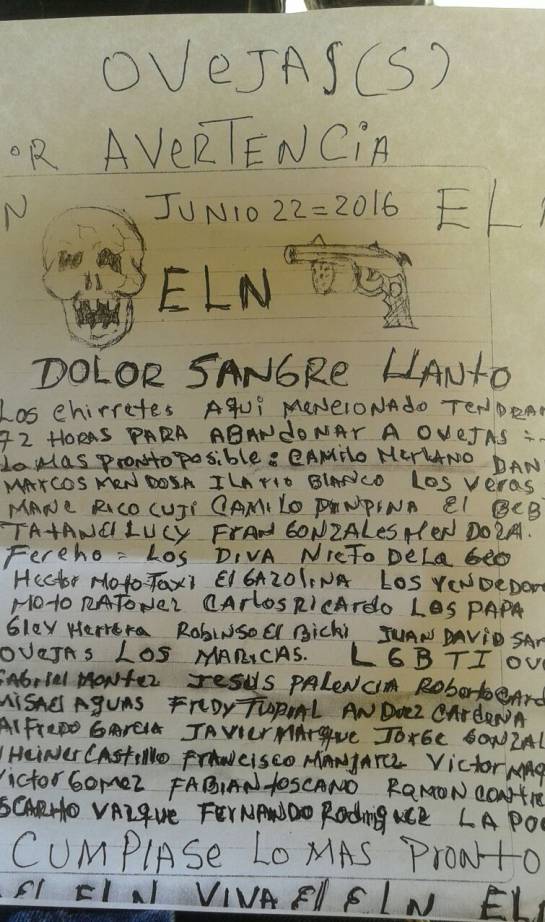 OVEJAS(S)
OR AVERTENCIA
N JUNIO 22=2016 EL
ELN
DOLOR SANGRE LLANTO
LOS chirretes AQUI MENCIONADO TENDRAN
72 HORAS PARA ABANDONAR A OVEJAS =
Lo MAS PRONTO POSIBLE: CAMILO MERLANO DAN
MARCOS MENDOSA ILARIO BLANCO LOS VERAS
MANE RICO CUJI CAMILO PINPINA El BEB
TATANEl LUCY FRAN GONZALES MENDOZA.
Fereho = LOS DIVA NIETO DE LA GEO
Hector MOTO TAXI El GAZOLINA LOS VENDEDOR
MOTO RATONEZ CARLOS RICARDO LOS PAPA
Gley Herrera ROBINSO El Bichi JUAN DAVID SAR
OVEJAS LOS MARICAS. LGBTI OV
GABRIEL MONTEZ JESUS PALENCIA ROBERTO CARD
MISAEL AGUAS FREDY ANDREZ CARDENA
AlFREDO GARCIA JAVIER MARQUE JORGE GONZAL
HEINER CASTILLO FRANCISCO MANJAREZ VICTOR MAQ
VICTOR GOMEZ FABIAN TOSCANO RAMON CONTRE
VAZQUE FERNANDO RODRIGUEZ LA PO
CUMPLASE LO MAS PRONTO
El ELN VIVA El ELN EL